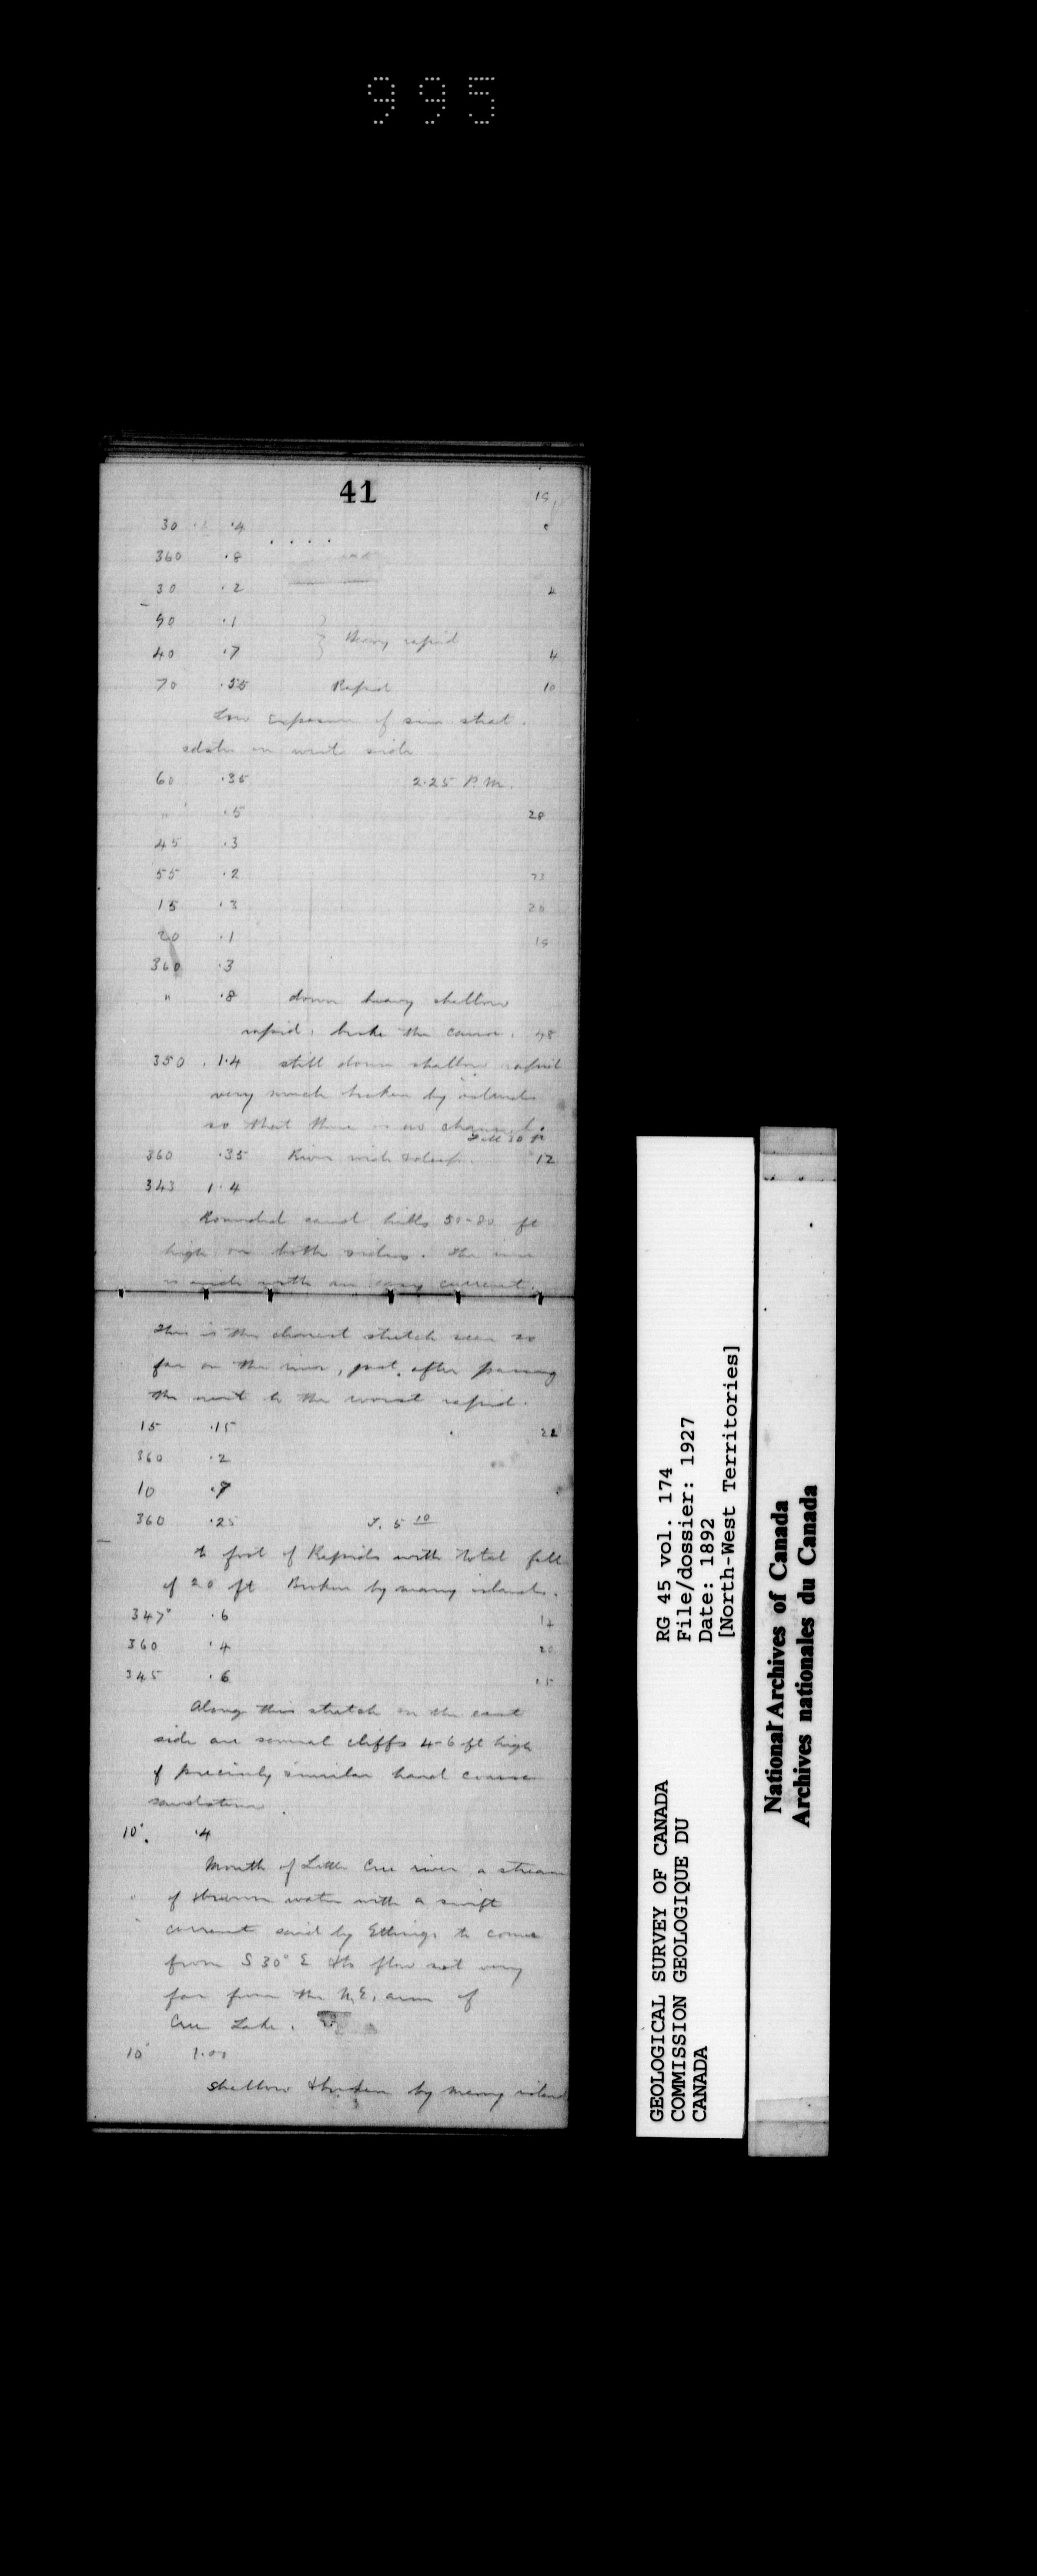 995
41
19
30 .4
360 .8
30 .2 4
90 .1
Heavy rapid
40 .7 4
70 .55 Rapid 10
Low exposure of sim strat.
sdstn on west side
60 .35 2.25 P.M.
" .5 28
45 .3
55 .2 23
15 .3 20
20 .1 19
360 .3
" .8 down heavy shallow
rapid, broke the canoe. 48
350 1.4 still down shallow rapid
very much broken by islands
so that there is no channel.
Fall 10 ft
360 .35 River wide & deep. 12
343 1.4
Rounded sand hills 50-80 ft
high on both sides. The river
is wide with an easy current.
This is the clearest stretch seen so
far on the river, just after passing
the next to the worst rapid.
15 .15 22
360 .2
10 .7
360 .25 T. 5 10
to foot of Rapids with total fall
of 20 ft. Broken by many islands.
347° .6 14
360 .4 20
345 .6 15
Along this stretch on the east
side are several cliffs 4-6 ft high
of precisely similar hard coarse
sandstone.
10° .4
Mouth of Little Cree river a stream
of brown water with a swift
current said by Ethings to come
from S 30° E & to flow not very
far from the N.E. arm of
Cree Lake.
10° 1.00
Shallow & broken by many island
GEOLOGICAL SURVEY OF CANADA
COMMISSION GEOLOGIQUE DU
CANADA
RG 45 vol. 174
File/dossier: 1927
Date: 1892
[North-West Territories]
National Archives of Canada
Archives nationales du Canada